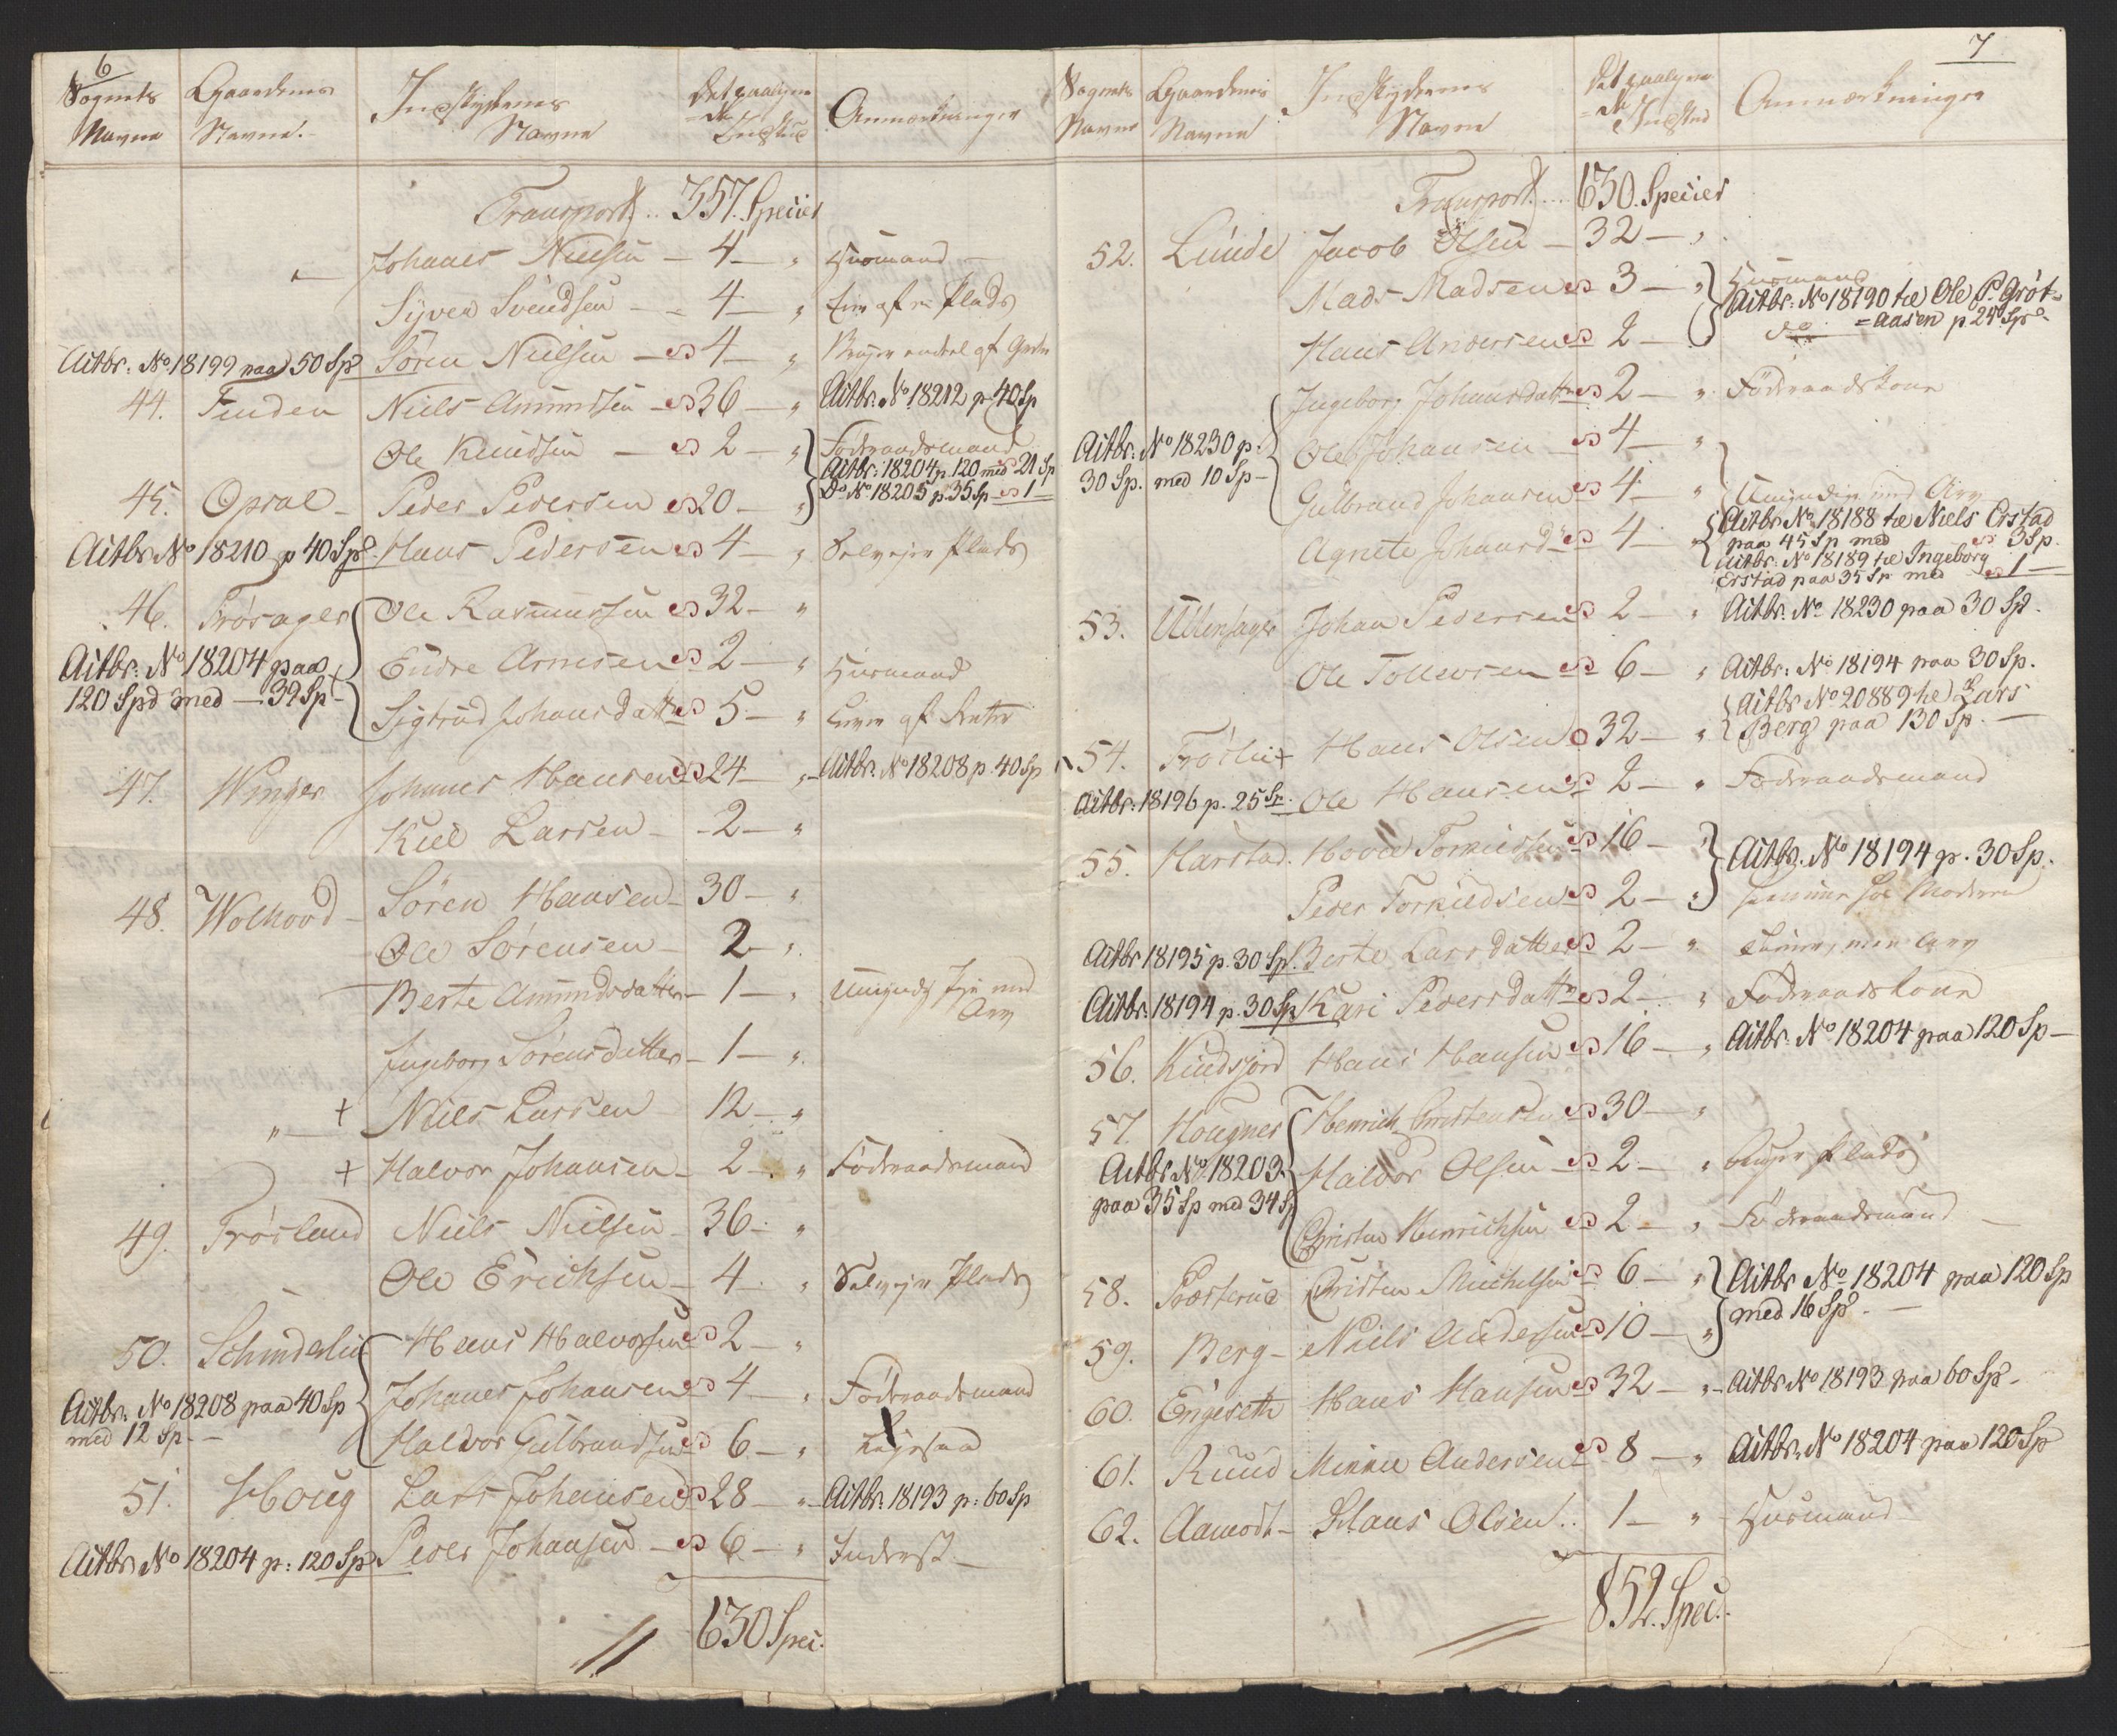 6
Sognets Navne
Gaardenes Navne.
Indskydernes Navne
Det paalignede Indskud
Anmærkninger
Transport .. 357. Species
Johanes Nielsen - 4 - " Huusmand -
Syver Svendsen - - 4 - " Eier af en Plads
Aitbr. No 18199 paa 50 Sp Sören Nielsen - 4 - "
44. Finden Niels Amundsen - 36 - " Aitbr. No 18212 p. 40 Sp
Ole Knudsen - 2 - " Föderaadsmand
Aitbr: 18204 p. 120 med 21 Sp
45. Opsal - Peder Pedersen 20 - " Do No 18205 p. 35 Sp - 1 -
Aitbr No 18210 p 40 Sp. Hans Pedersen 4 - " Selveyer Plads
46. Frösager Ole Rasmussen 32 - "
Aitbr. No 18204 paa 120 Spd med - 39 Sp -
Endre Arnesen 2 - " Huusmand
Sigtrud Johansdatter 5 - " Lever af Renter
47. Winger Johanes Hansen 24 - " Aitbr. No 18208 p. 40 Sp
Kiel Larsen - - 2 - "
48. Wolhovd - Sören Hansen - 30 - "
Ole Sörensen - 2 - "
Berte Amundsdatter - 1 - " Umyndig Pige med Arv
Ingeborg Sörensdatter - 1 - "
" - + Niels Larsen 12 - "
+ Halvor Johansen - 2 - " Föderaadsmand
49. Frösland Niels Nielsen - 36 - "
Ole Erichsen - 4 - " Selveyer Plads
50. Schinderlie Hans Halvorsen 2 - "
Aitbr. No 18208 paa 40 Sp med 12 Sp. -
Johanes Johansen 4 - " Föderaadsmand
Haldvor Gulbrandsen 6 - "
51. Houg Lars Johansen 28 - " Aitbr. 18193 p: 60 Sp
Aitbr No 18204 p: 120 Sp. Peder Johansen - 6 - " Inderst -
630 Spec.
7
Sognets Navne
Gaardenes Navne
Indskydernes Navne
Det paalignede Indskud
Anmærkninger
Transport .... 630. Species
52. Lunde Jacob Olsen - 32 - "
Mads Madsen 3 - " Huusmand
Aitbr: No 18190 til Ole P. Gröt-
=aasen p. 24 Sp.
Hans Andersen 2 - do
Ingeborg Johansdatter 2 - " Föderaadskone
Aitbr: No 18230 p. 30 Sp. med 10 Sp -
Ole Johansen 4 - "
Gulbrand Johansen 4 - " Umyndige med Arv
Agnete Johansd. 4 - " Aitbr No 18188 til Niels Erstad
paa 45 Sp med 3 Sp.
Aitbr: No 18189 til Ingeborg
Erstad paa 35 Sp med 1 -
53. Ullensager Johan Pedersen 2 - " Aitbr. No 18230 paa 30 Sp.
Ole Tollevsen 6 - " Aitbr: No 18194 paa 30 Sp.
54. Fröslie + Hans Olsen 32 - " Aitbr No 20889 til Lars
Berg paa 130 Sp. -
Aitbr: 18196 p. 25 Sp. Ole Hansen 2 - " Föderaadsmand
55. Harstad. Hovel Torkildsen 16 - " Aitbr. No 18194 p. 30 Sp.
Peder Torkildsen 2 - " hjemme hos Moderen
Aitbr 18195 p. 30 Sp. Berte Larsdatter 2 - "
Aitbr. 18194 p. 30 Sp. Kari Pedersdatter 2 - " Föderaadskone
56. Kindsjord Hans Hansen 16 - " Aitbr. No 18204 paa 120 Sp -
57. Hougner Henrich Christensen 30 - "
Aitbr No 18203 paa 35 Sp med 34 Sp
Haldor Olsen 2 - " bruger Plads
Christen Henrichsen 2 - " Föderaadsmand
58. Præsterud Christen Michelsen 6 - " Aitbr No 18204 paa 120 Sp
med 16 Sp. -
59. Berg - Niels Andersen 10 - "
60. Engeseth Hans Hansen 32 - " Aitbr No 18193 paa 60 Sp -
61. Ruud Mikkel Andersen 8 - " Aitbr. No 18204 paa 120 Sp
62. Aamodt - Claus Olsen .. 1 - " Huusmand
852. Spec.